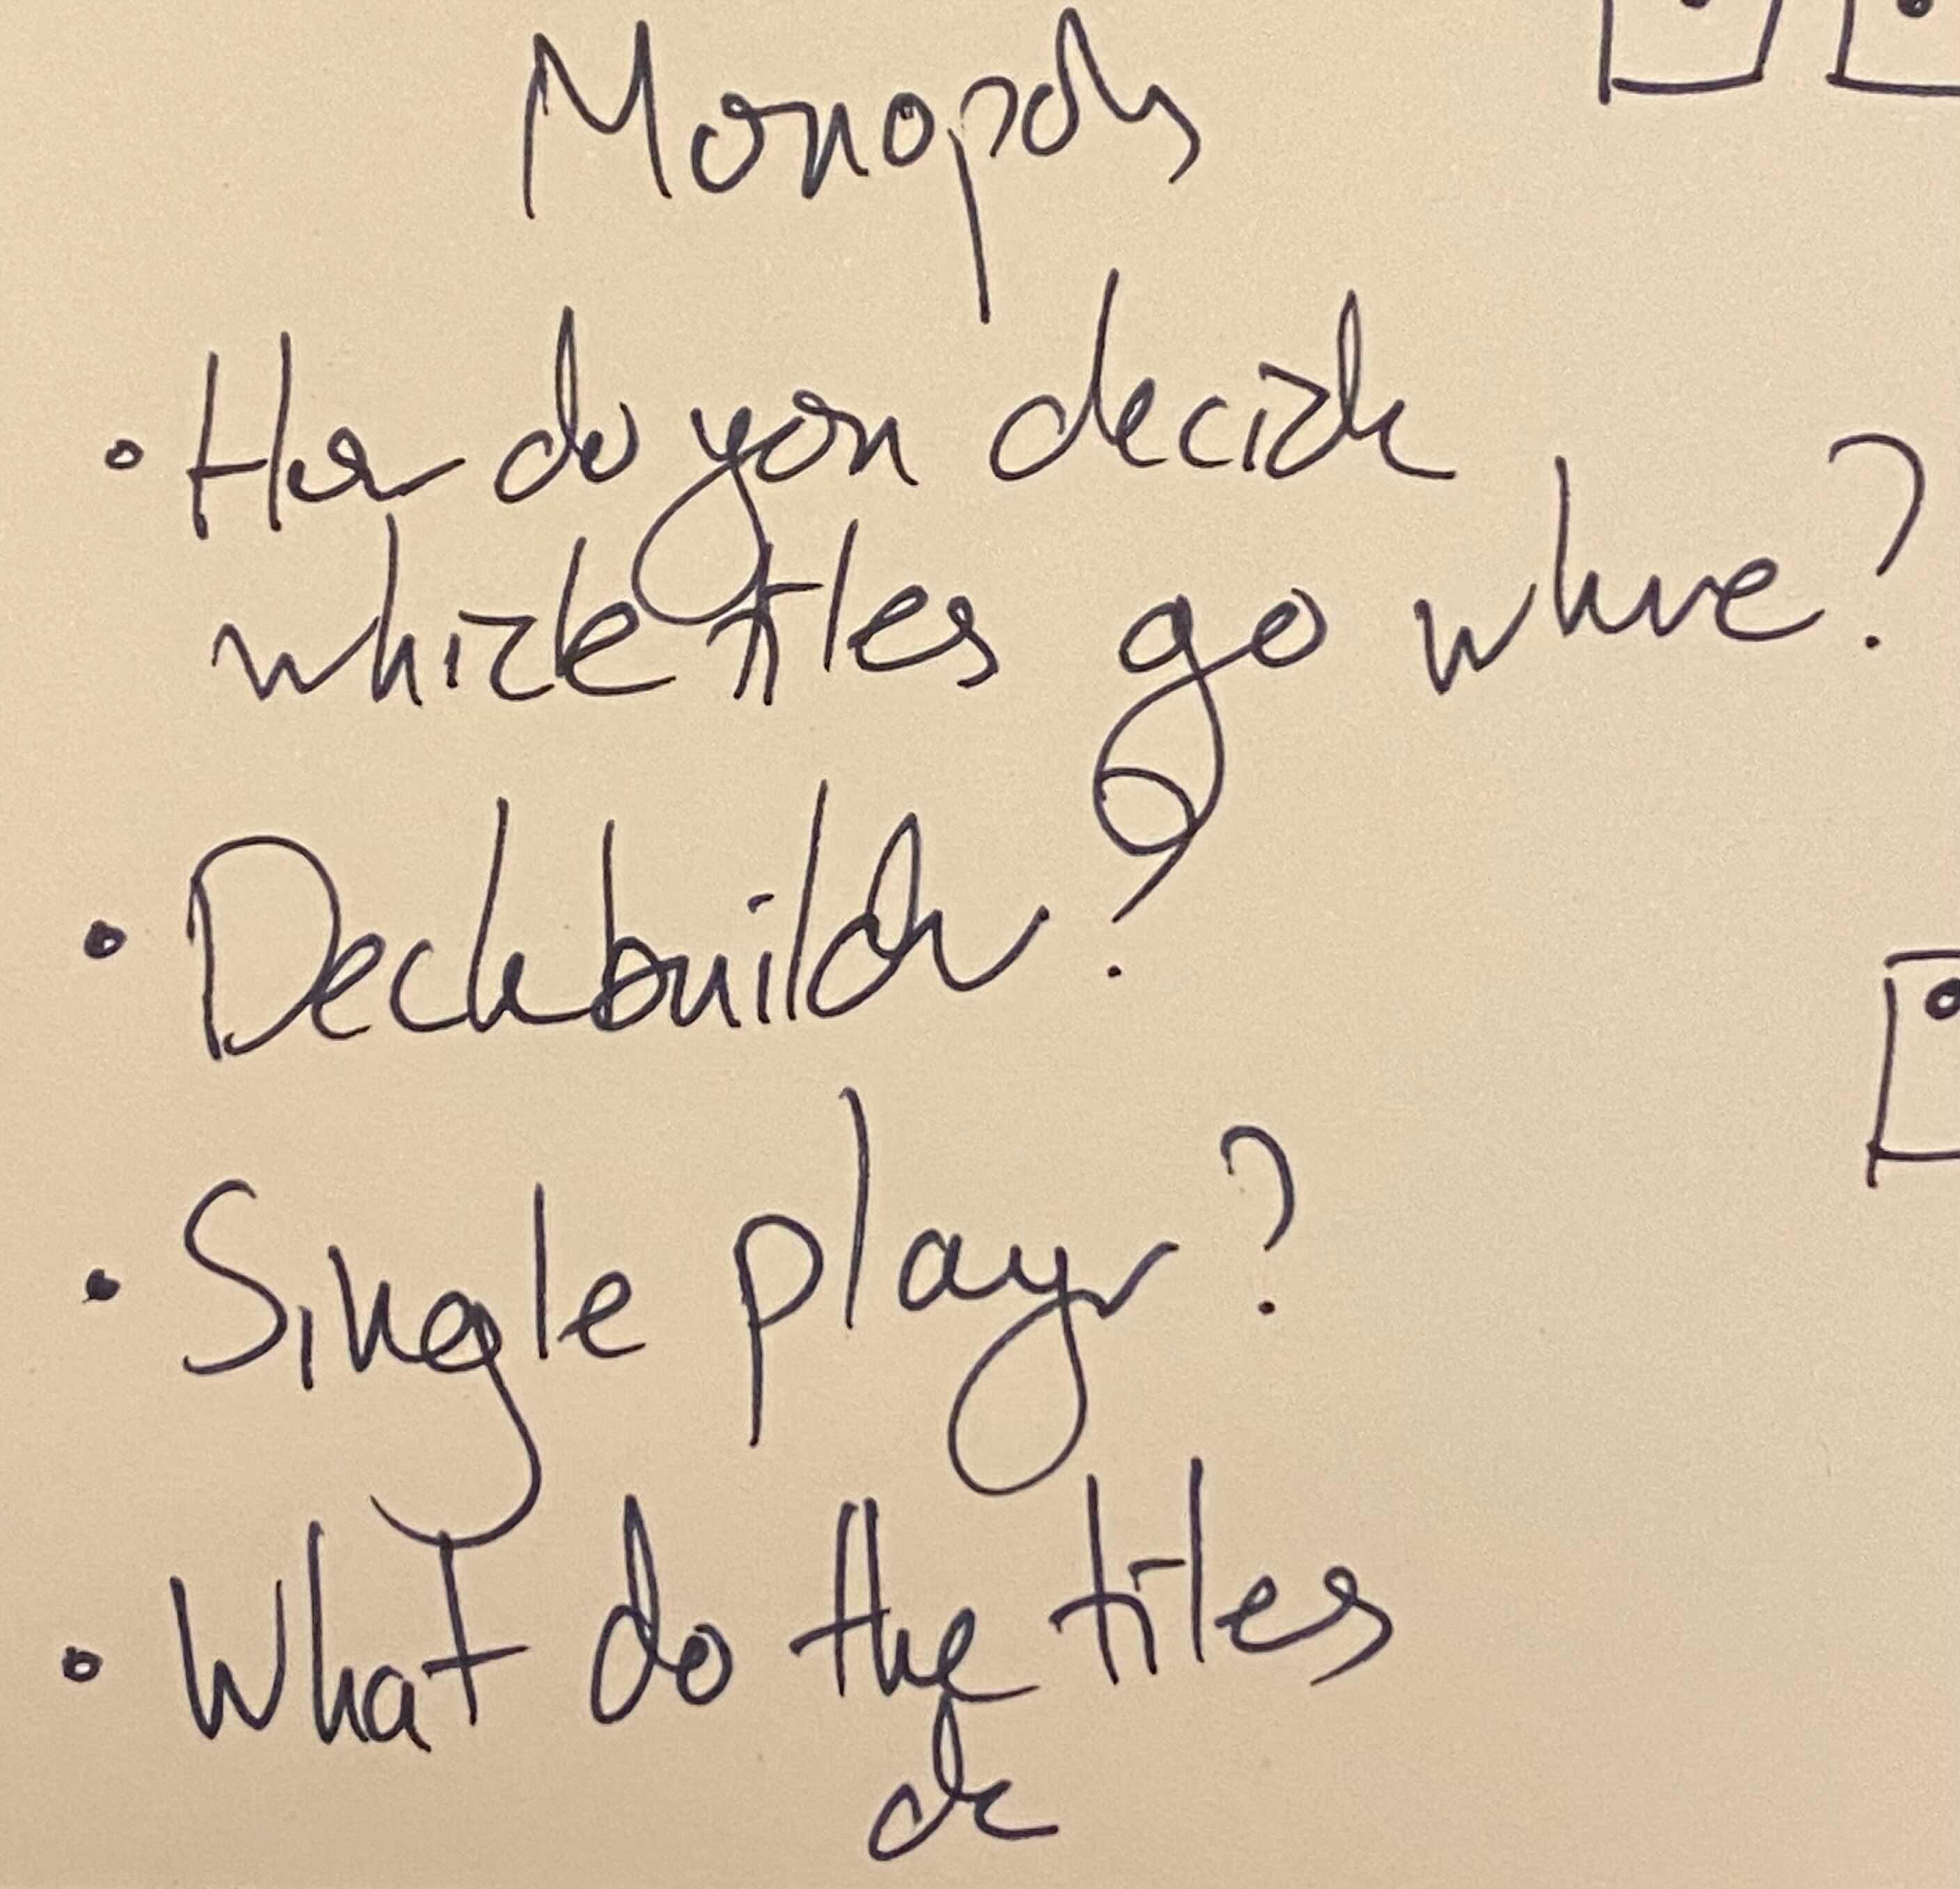 Monopoly
• How do you decide
which tiles go where?
• Deckbuilder?
• Single player?
• What do the tiles
do